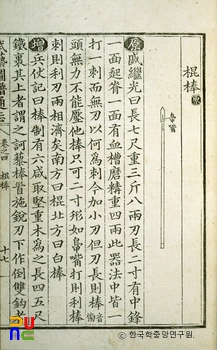 棍棒 原
鴨觜
原 戚繼光曰長七尺重三斤八兩刃長二寸有中鋒
一面起脊一面有血槽磨精重四兩此器法中皆一
打一刺而無刃以何爲刺今加小刃但刃長則棒
頭無力不能壓他棒只可二寸形如鴨觜打則利棒
刺則利刃兩相濟矣南方曰棍北方曰白棒
增 兵仗記曰棒制有六咸取堅重木爲之長四五尺
鐵裹其上者謂之訶藜棒首施銳刃下作倒雙鉤者
武藝圖譜通志 卷之四 棍棒 十七
©한국학중앙연구원.